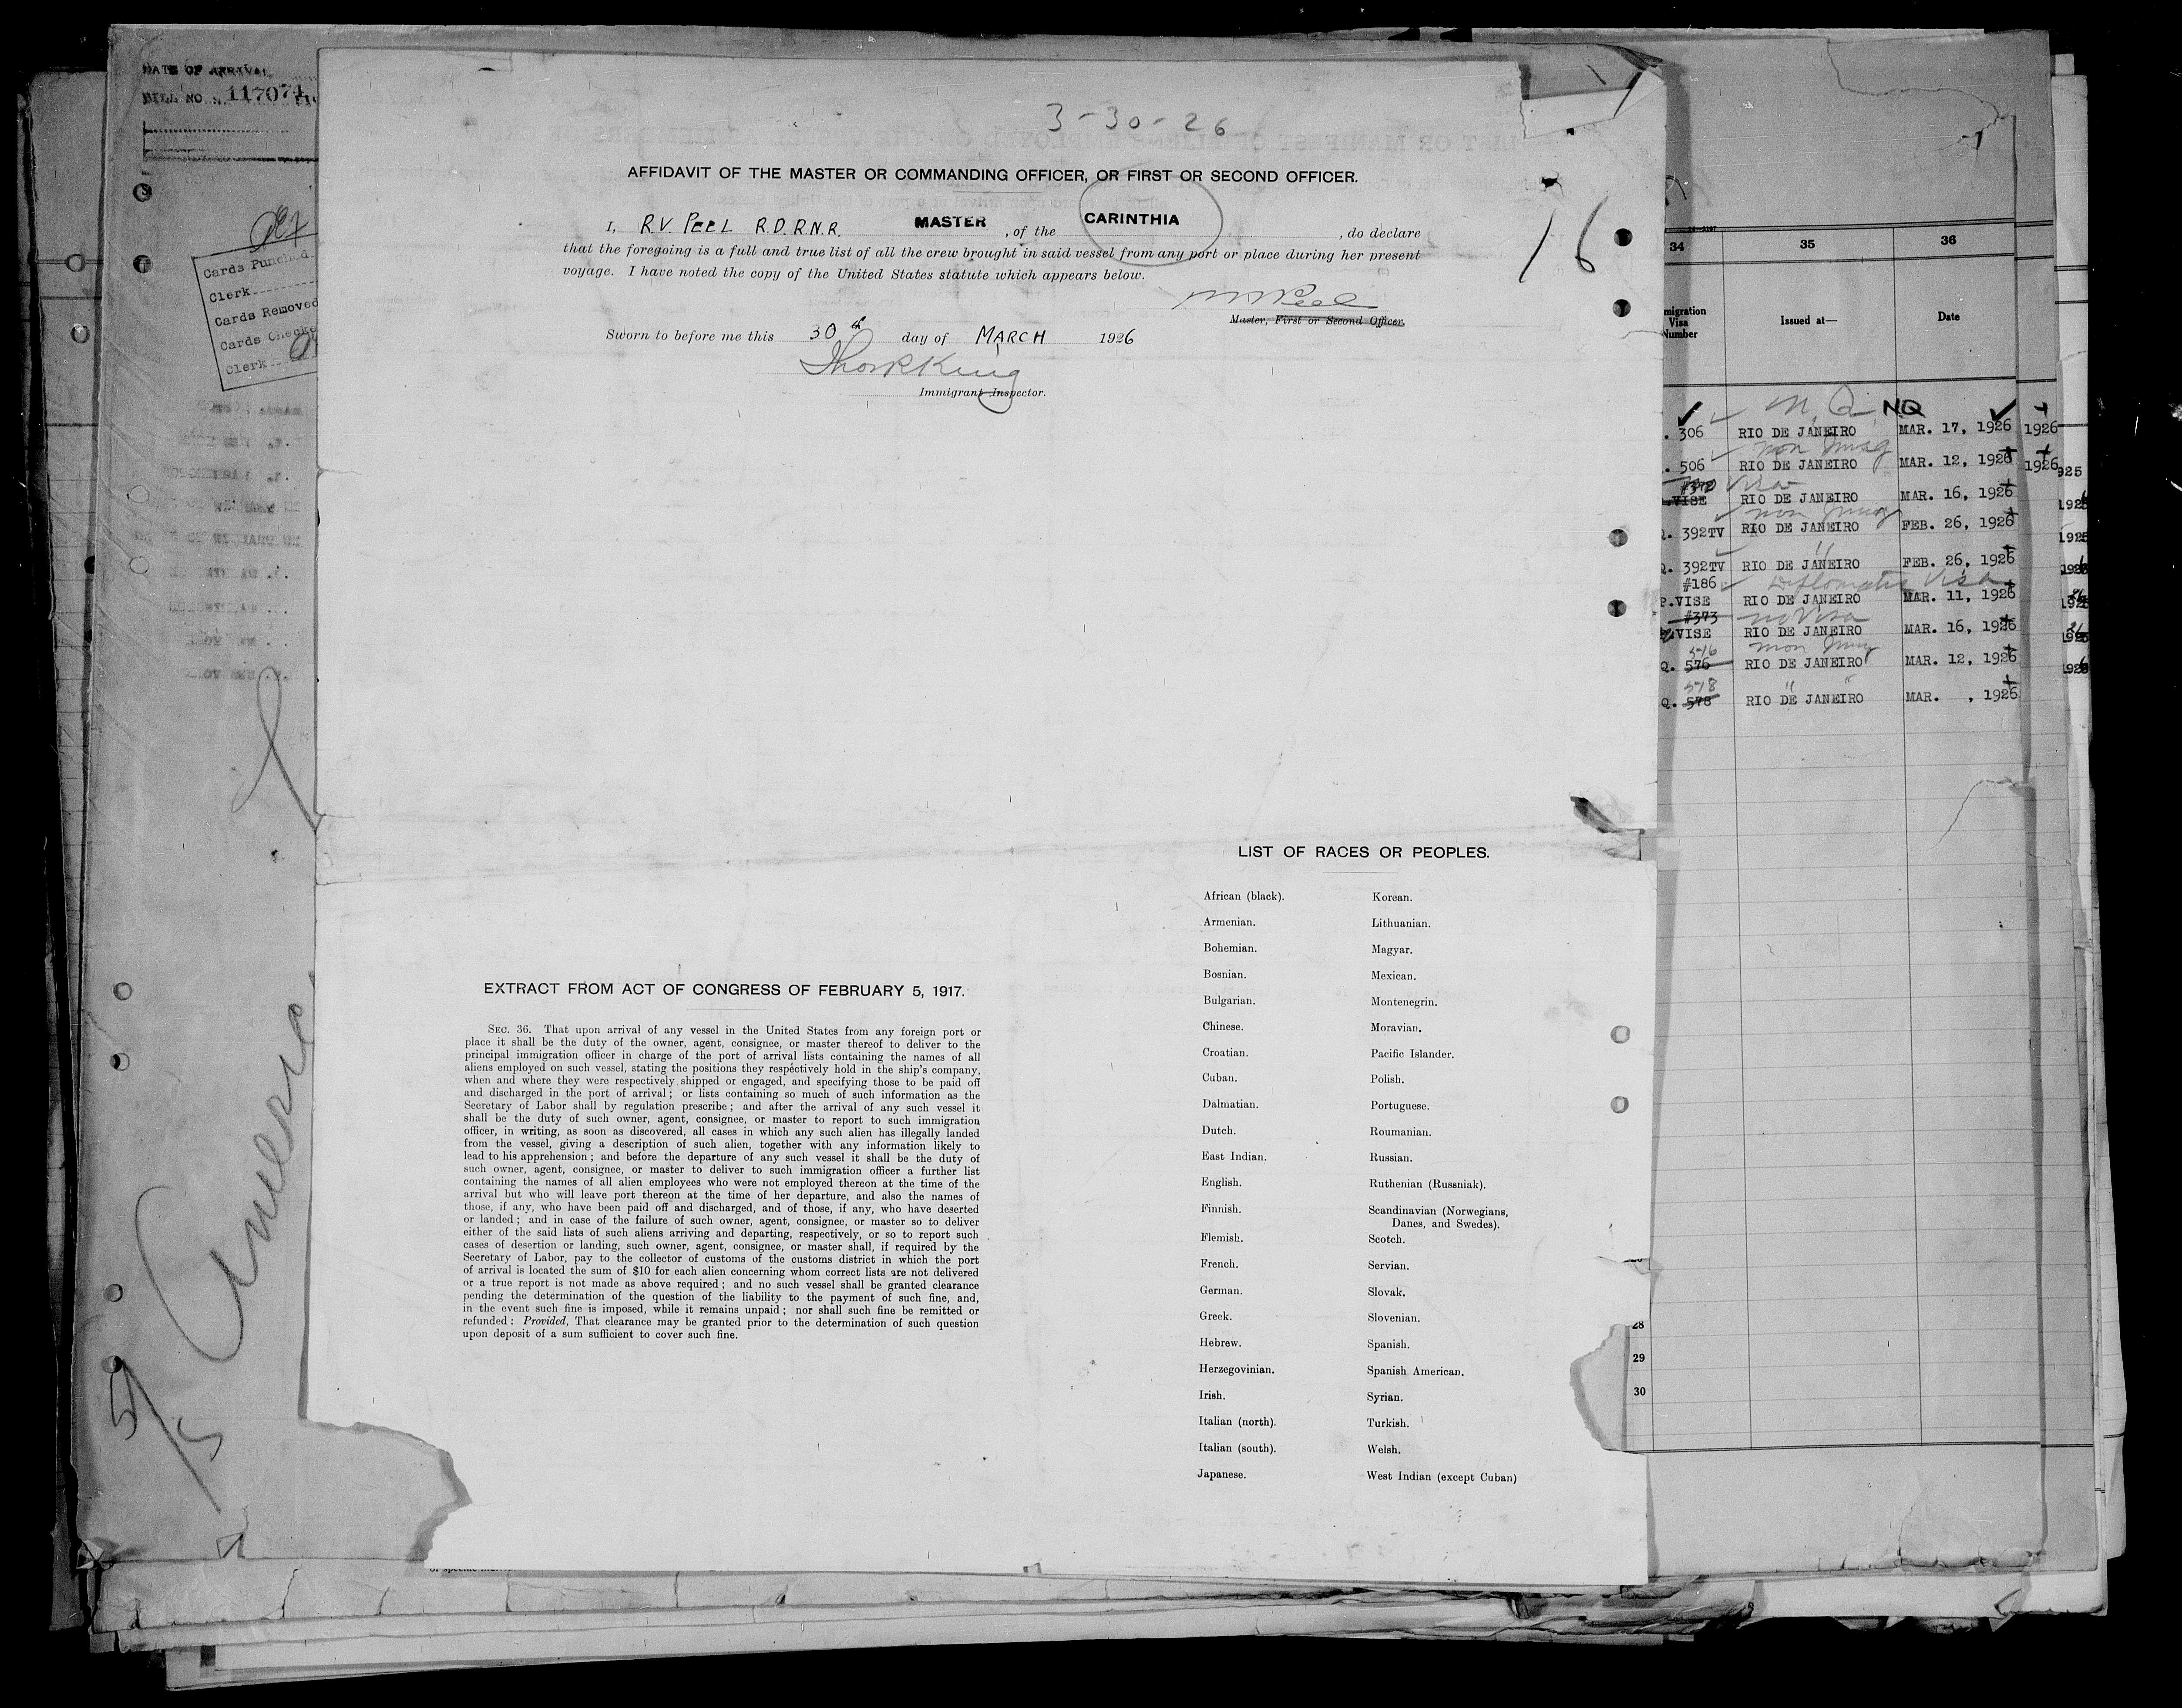 DATE OF ARRIVAL
BILL NO. 117071
Cards Punched
Clerk
Cards Removed
Cards Checke
Clerk
3-30-26
AFFIDAVIT OF THE MASTER OR COMMANDING OFFICER, OR FIRST OR SECOND OFFICER.
I, R.V. PEEL R.D.R.N.R. MASTER, of the CARINTHIA, do declare
that the foregoing is a full and true list of all the crew brought in said vessel from any port or place during her present
voyage. I have noted the copy of the United States statute which appears below.
16
Master, First or Second Officer.
Sworn to before me this 30th day of MARCH 1926
Immigrant Inspector.
LIST OF RACES OR PEOPLES.
African (black). Korean.
Armenian. Lithuanian.
Bohemian. Magyar.
Bosnian. Mexican.
Bulgarian. Montenegrin.
Chinese. Moravian.
Croatian. Pacific Islander.
Cuban. Polish.
Dalmatian. Portuguese.
Dutch. Roumanian.
East Indian. Russian.
English. Ruthenian (Russniak).
Finnish. Scandinavian (Norwegians,
Danes, and Swedes).
Flemish. Scotch.
French. Servian.
German. Slovak.
Greek. Slovenian.
Hebrew. Spanish.
Herzegovinian. Spanish American.
Irish. Syrian.
Italian (north). Turkish.
Italian (south). Welsh.
Japanese. West Indian (except Cuban)
EXTRACT FROM ACT OF CONGRESS OF FEBRUARY 5, 1917.
SEC. 36. That upon arrival of any vessel in the United States from any foreign port or
place it shall be the duty of the owner, agent, consignee, or master thereof to deliver to the
principal immigration officer in charge of the port of arrival lists containing the names of all
aliens employed on such vessel, stating the positions they respectively hold in the ship's company,
when and where they were respectively shipped or engaged, and specifying those to be paid off
and discharged in the port of arrival; or lists containing so much of such information as the
Secretary of Labor shall by regulation prescribe; and after the arrival of any such vessel it
shall be the duty of such owner, agent, consignee, or master to report to such immigration
officer, in writing, as soon as discovered, all cases in which any such alien has illegally landed
from the vessel, giving a description of such alien, together with any information likely to
lead to his apprehension; and before the departure of any such vessel it shall be the duty of
such owner, agent, consignee, or master to deliver to such immigration officer a further list
containing the names of all alien employees who were not employed thereon at the time of the
arrival but who will leave port thereon at the time of her departure, and also the names of
those, if any, who have been paid off and discharged, and of those, if any, who have deserted
or landed; and in case of the failure of such owner, agent, consignee, or master so to deliver
either of the said lists of such aliens arriving and departing, respectively, or so to report such
cases of desertion or landing, such owner, agent, consignee, or master shall, if required by the
Secretary of Labor, pay to the collector of customs of the customs district in which the port
of arrival is located the sum of $10 for each alien concerning whom correct lists are not delivered
or a true report is not made as above required; and no such vessel shall be granted clearance
pending the determination of the question of the liability to the payment of such fine, and,
in the event such fine is imposed, while it remains unpaid; nor shall such fine be remitted or
refunded: Provided, That clearance may be granted prior to the determination of such question
upon deposit of a sum sufficient to cover such fine.
34 35 36
migration
Visa
Number
Issued at— Date
NQ
306 RIO DE JANEIRO MAR. 17, 1926 1926
506 RIO DE JANEIRO MAR. 12, 1926 1926
VISE RIO DE JANEIRO MAR. 16, 1926
Q. 392TV RIO DE JANEIRO FEB. 26, 1926
Q. 392TV RIO DE JANEIRO FEB. 26, 1926
#186 Diplomatic Visa
P.VISE RIO DE JANEIRO MAR. 11, 1926
#373 no Visa
VISE RIO DE JANEIRO MAR. 16, 1926
516
Q. 576 RIO DE JANEIRO MAR. 12, 1926
518
Q. 578 RIO DE JANEIRO MAR. , 1926
28
29
30